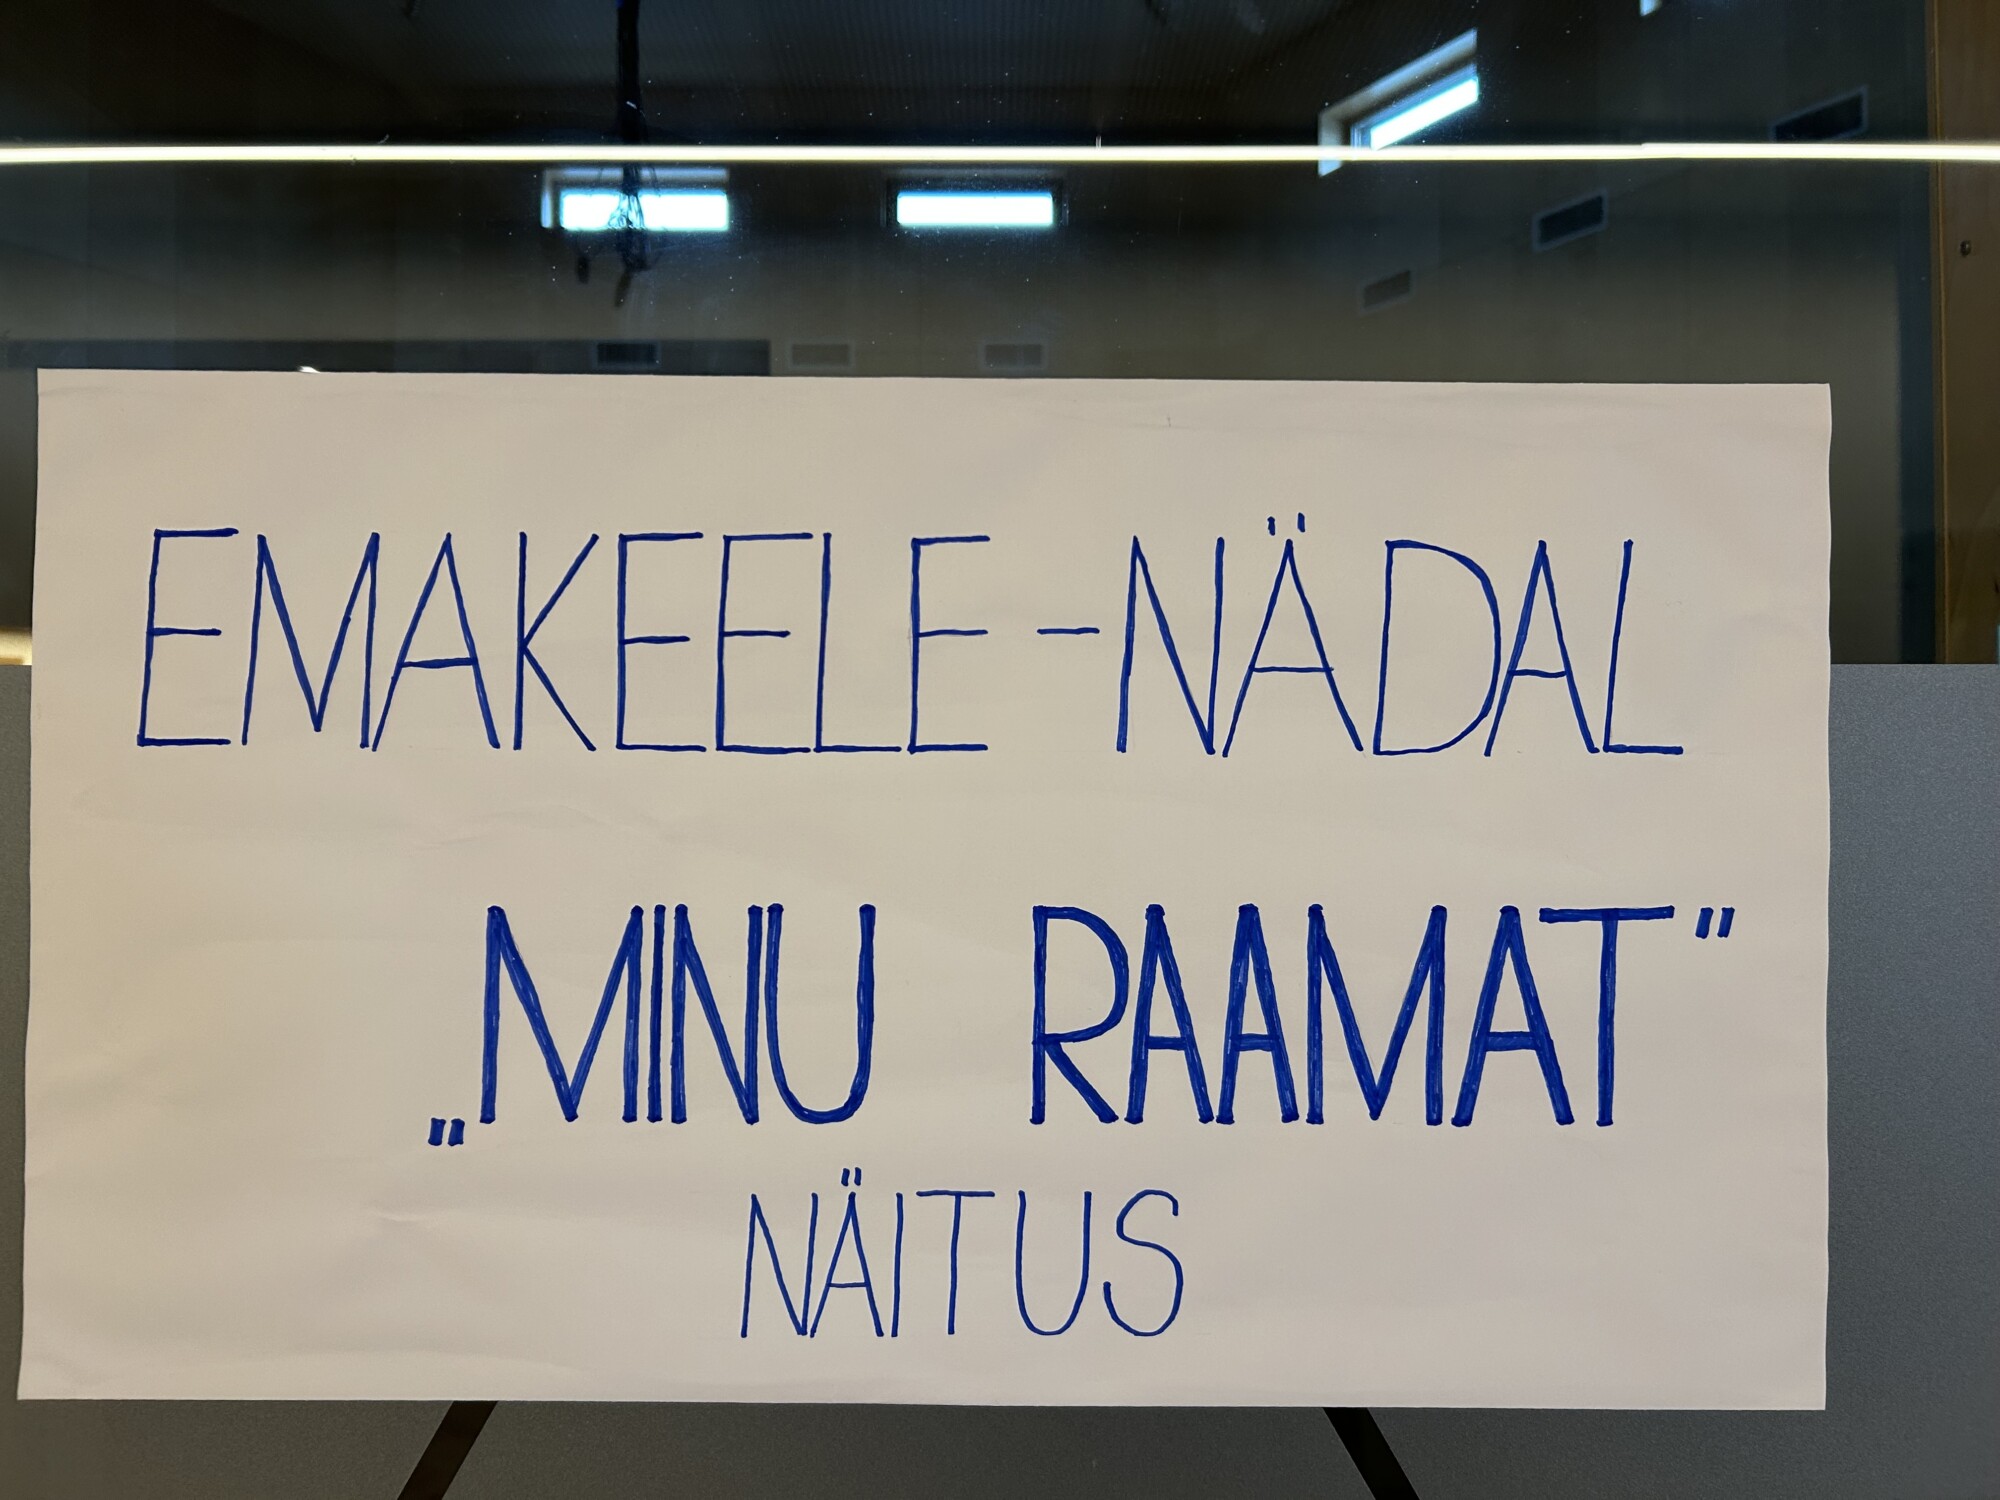 EMAKEELE-NÄDAL
„MINU RAAMAT"
NÄITUS